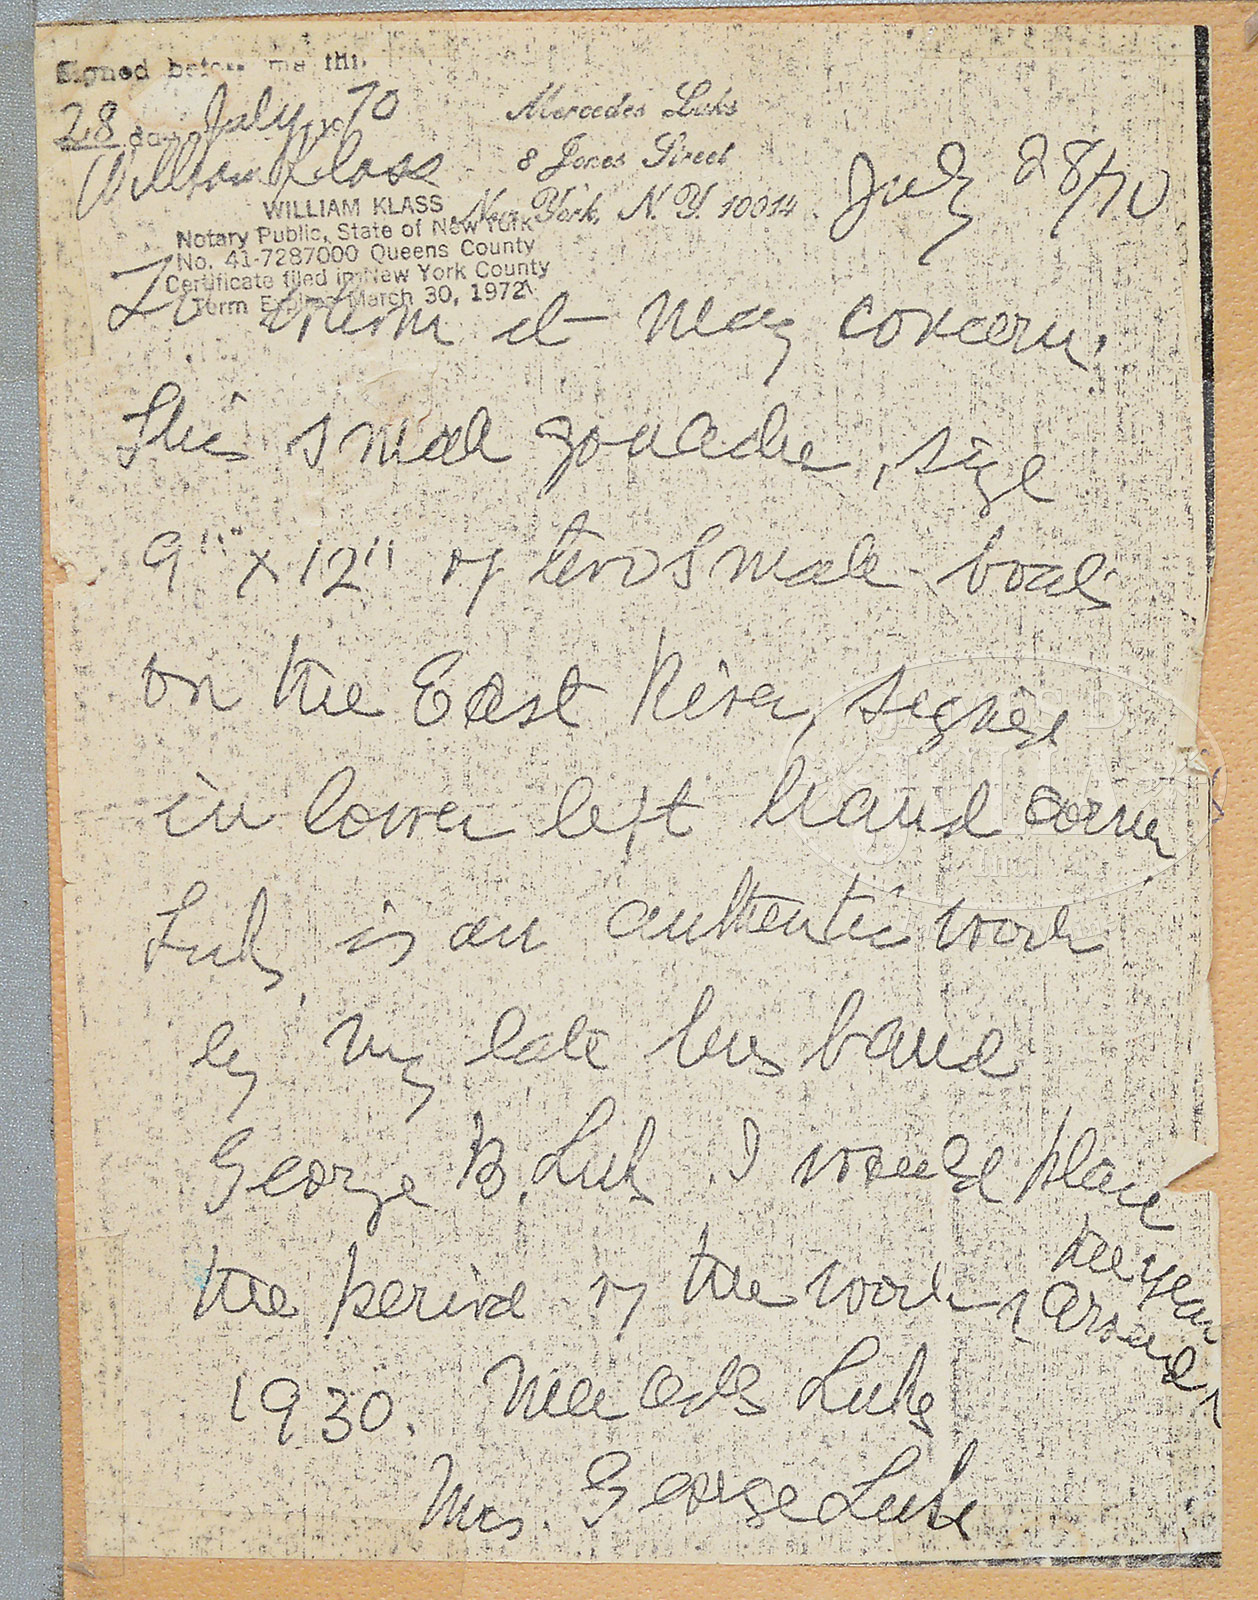 Signed before me this
28 day July 1970
William Klass
WILLIAM KLASS
Notary Public, State of New York
No. 41-7287000 Queens County
Certificate filed in New York County
Term Expires March 30, 1972
Mercedes Luks
8 Jones Street
New York, N.Y. 10014
July 28/70
To whom it may concern:
This small gouache, size
9" x 12" of two small boats
on the East River, signed
in lower left hand corner
Luks, is an authentic work
by my late husband
George B. Luks. I would place
the period of the work around
the year
1930. Mercedes Luks
Mrs. George Luks
JAMES D.
JULIA
Inc.